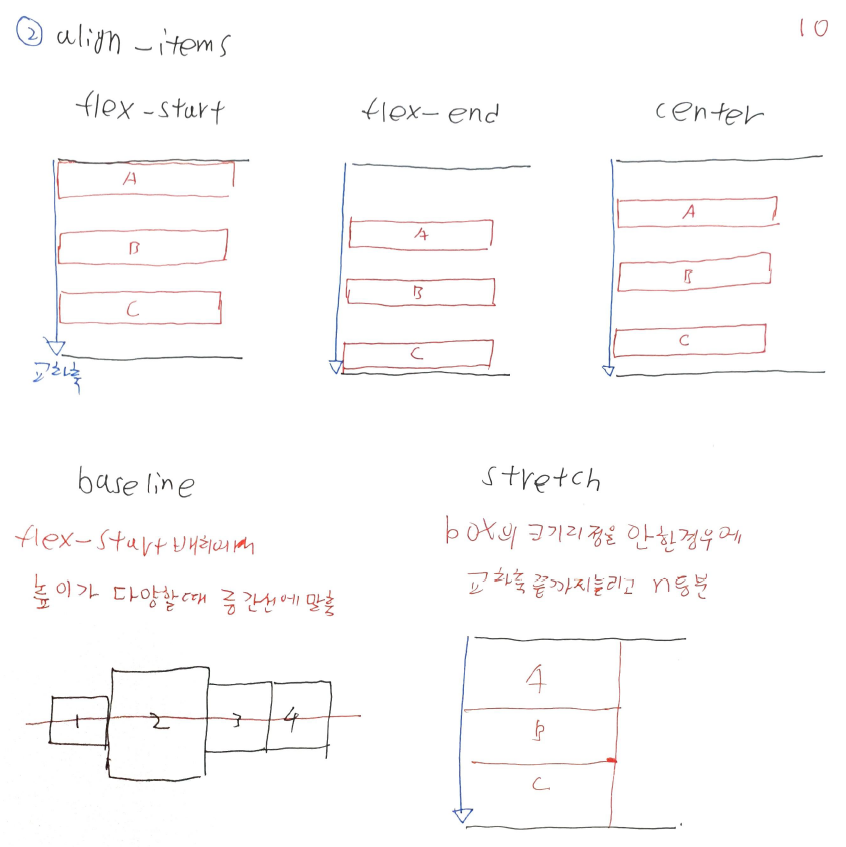 ② align-items
10
flex-start
flex-end
center
A
B
C
교차축
A
B
C
A
B
C
baseline
flex-start 배치에서
높이가 다양할때 중간선에 맞춤
1 2 3 4
stretch
box의 크기지정을 안한경우에
교차축끝까지늘리고 n등분
A
B
C